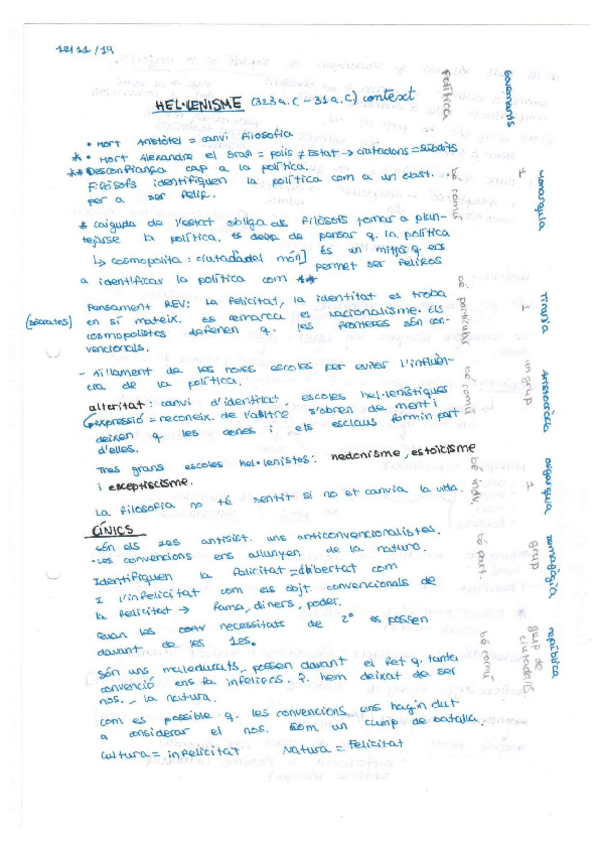 12/11/19
HEL·LENISME (323 a.C - 31 a.C) context
• Mort Aristòtel = canvi filosofia
* • Mort Alexandre el Gran = polis ≠ Estat → ciutadans = súbdits
** Desconfiança cap a la política.
Filòsofs identifiquen la política com a un obst.
per a ser feliç.
* Caiguda de l'estat obliga als filòsofs tornar a plan-
tejarse la política. es deixa de pensar q. la política
↳ cosmopolita: ciutadà del món] és un mitjà q ens
permet ser feliços
a identificar la política com **
Pensament REV: La felicitat, la identitat es troba
(sòcrates) en sí mateix. es remarca el racionalisme. Els
cosmopolistes defenen q. les fronteres són con-
vencionals.
- Aïllament de les noves escoles per evitar l'influèn-
cia de la política.
alteritat: canvi d'identitat. escoles hel·lenístiques
expressió = reconeix. de l'altre s'obren de ment i
deixen q les dones i els esclaus formin part
d'elles.
Tres grans escoles hel·lenistes: hedonisme, estoïcisme
i escepticisme.
La filosofia no té sentit si no et canvia la vida.
CÍNICS
són els 1es antisist. uns anticonvencionalistes.
-Les convencions ens allunyen de la natura.
Identifiquen la felicitat = llibertat com
I l'infelicitat com els objt. convencionals de
la felicitat → fama, diners, poder.
Quan les necessitats de 2ª es posen
davant de les 1es.
són uns maleducats, posen davant el fet q. tanta
convenció ens fa infeliços. P. hem deixat de ser
nos. la natura.
com es possible q. les convencions ens hagin dut
a considerar el nos. com un camp de batalla.
cultura = infelicitat natura = felicitat
Governants
Política
monarquia
1
bé comú
Tirania
1
bé particular
Aristocràcia
un grup
bé comú
oligarquia
1
bé indv.
demagògia
grup
bé part.
república
grup de
ciutadans
bé comú